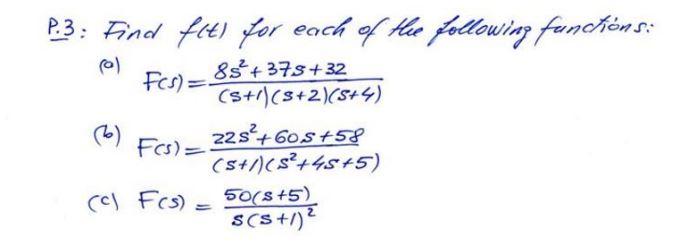 P.3: Find f(t) for each of the following functions:
(a) F(s) = 8s²+37s+32 / (s+1)(s+2)(s+4)
(b) F(s) = 22s²+60s+58 / (s+1)(s²+4s+5)
(c) F(s) = 50(s+5) / s(s+1)²